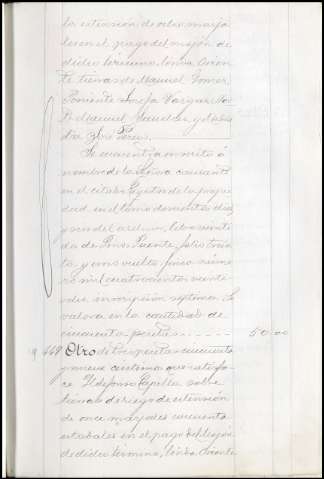 de estension de ocho marja
les en el pago del mojon de
dicho termino, linda Orien
te tierras de Manuel Gomez
Poniente Josefa Vargas Nor
te Manuel Sanchez y
dia José Perez.
Se encuentra inscrito á
nombre de la Señora causante
en el citado Registro de la propie
dad en el tomo doscientos diez
y seis del archivo, libro veinte
da de Pinos Puente, folio trein
ta y uno vuelto, finca nume
ro mil cuatrocientos veinte
dos inscripcion septima. Se
valora en la cantidad de
cincuenta pesetas 50.00
449 Otro de tres pesetas cincuenta
y nueve centimos que satisfa
ce Ildefonso Capilla sobre
tierras de riego de estension
de once marjales cincuenta
estadales en el pago del Mojon
de dicho termino, linda Oriente